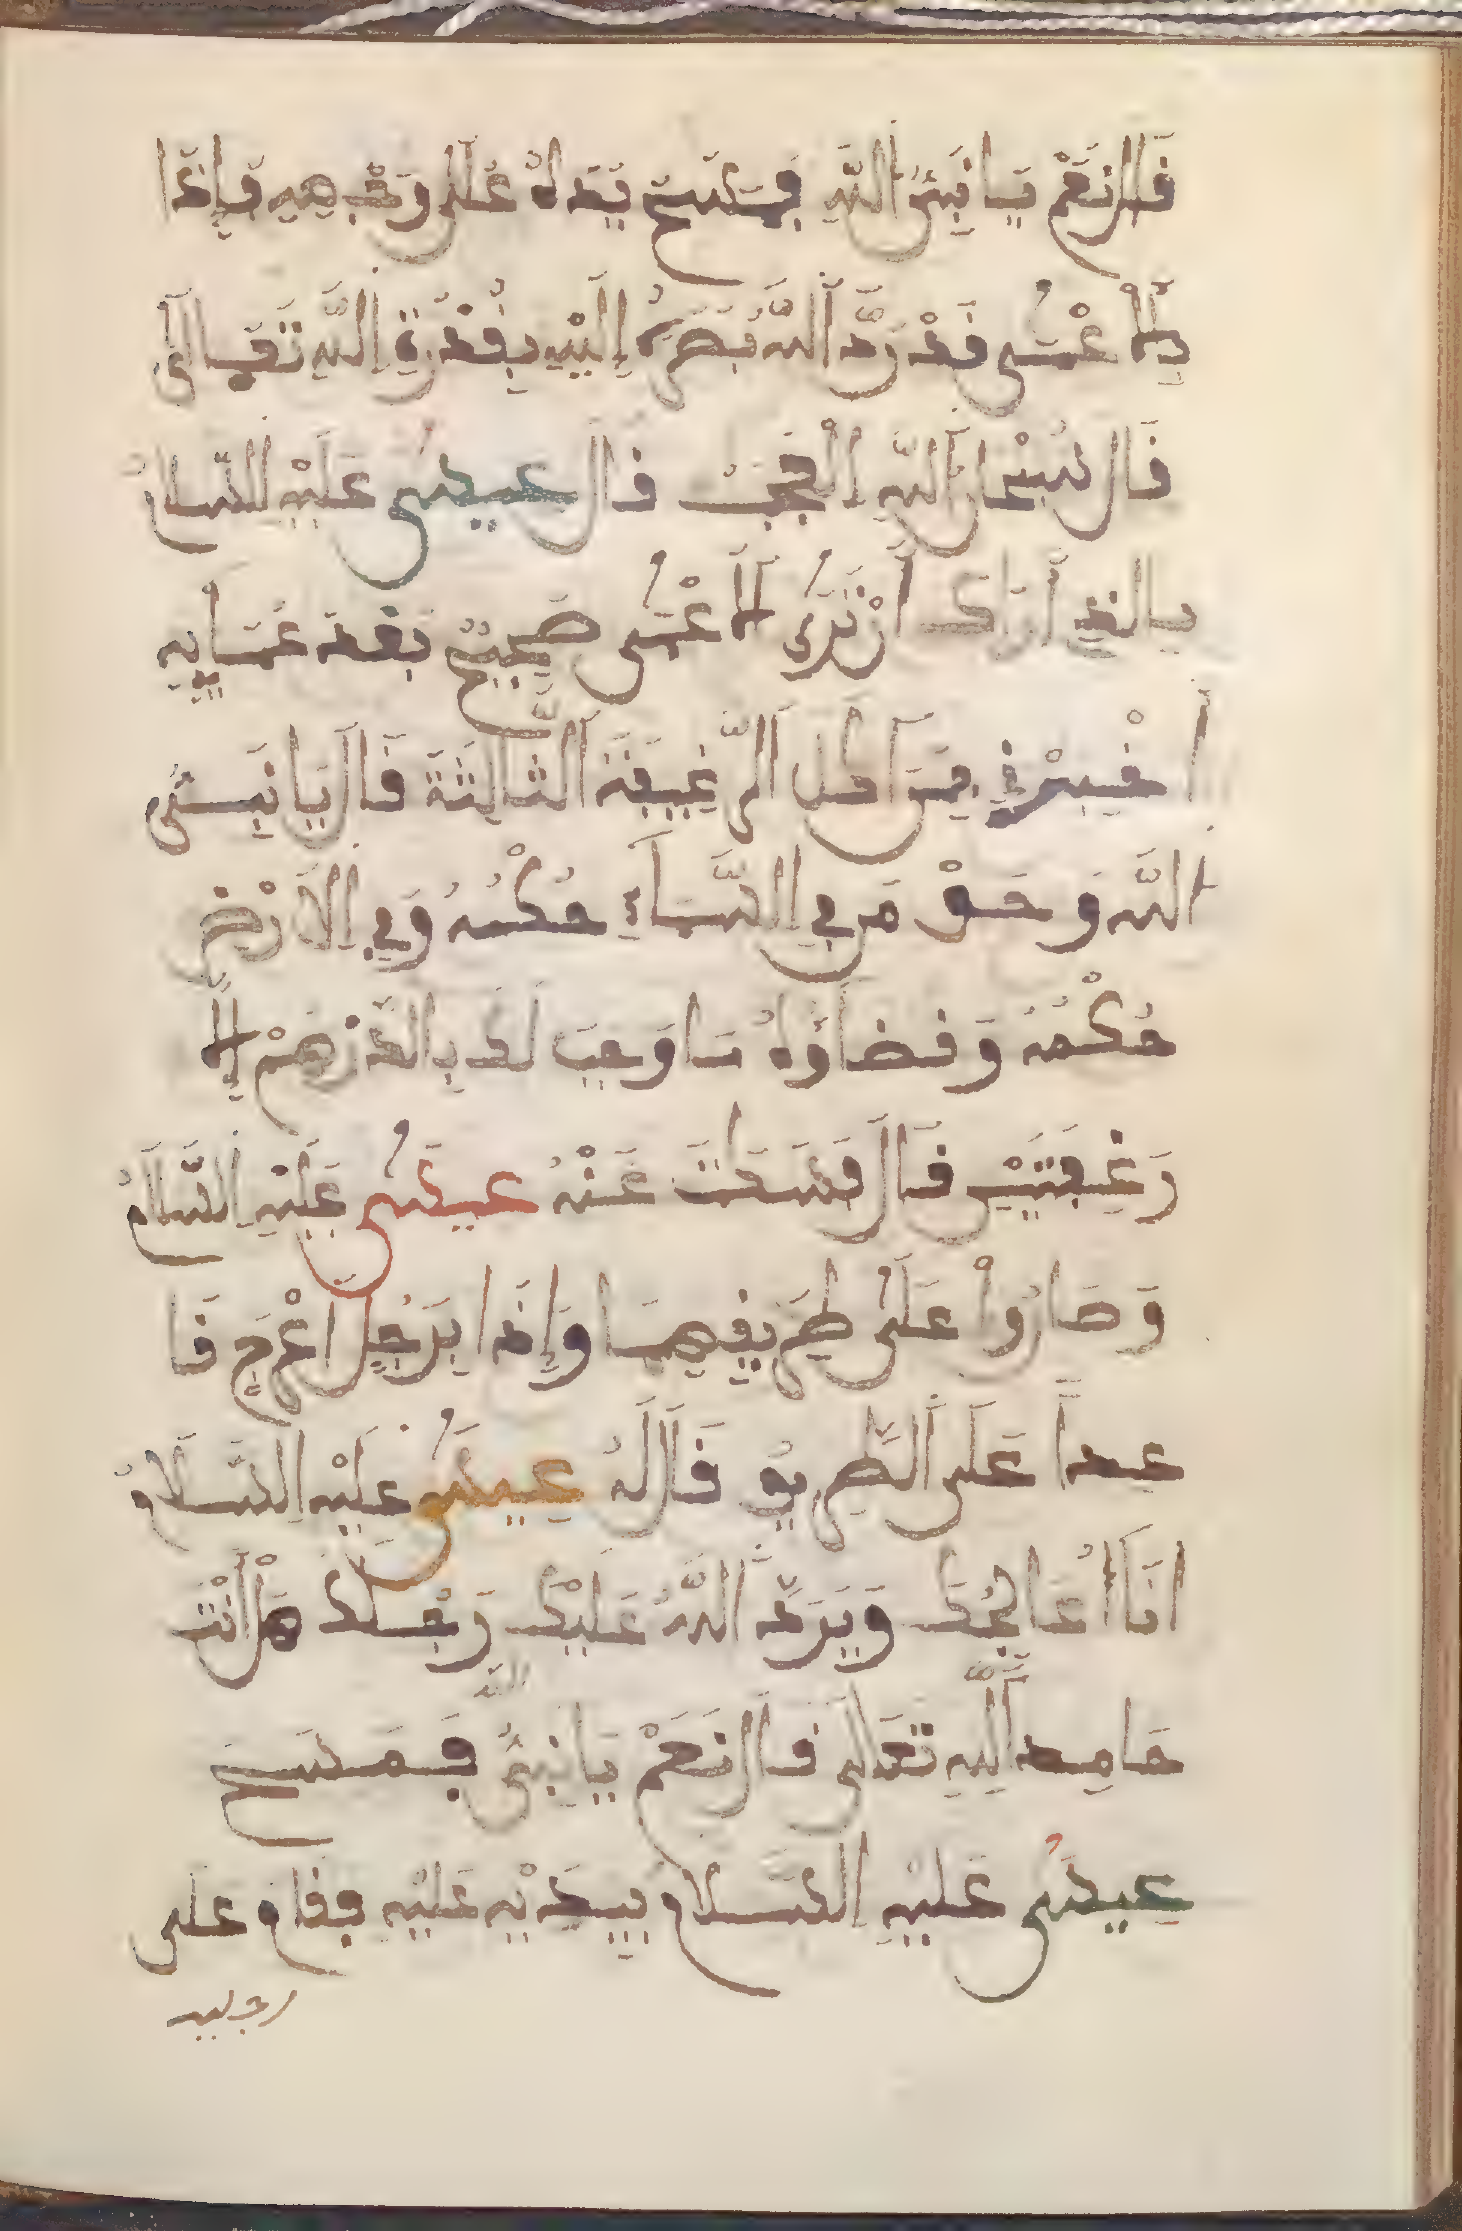 قَالَ نَعَمْ يَا نَبِىَّ اللَّهِ فَمَسَحَ يَدَهُ عَلَى وَجْهِهِ فَإِذَا
بِالاَعْمَى قَدْ رَدَّ اللَّهُ بَصَرَهُ إِلَيْهِ بِقُدْرَةِ اللَّهِ تَعَالَى
قَالَ سُبْحَانَ اللَّهِ الْعَجَبُ قَالَ عِيسَى عَلَيْهِ السَّلَامُ
بِالَّذِى أَرَاكَ أَنْ تَرَى الاَعْمَى صَحِيحٌ بَعْدَ عَمَايِهِ
أَخْبِرْنِى مَنْ أَكَلَ الرَّغِيفَةَ الثَّالِثَةَ قَالَ يَا نَبِىَّ
اللَّهِ وَحَقِّ مَنْ فِى السَّمَآءِ حُكْمُهُ وَفِى الاَرْضِ
حُكْمُهُ وَقَضَاؤُهُ مَا وَجَبَ لَكَ بِالدِّرْهَمْ إِلَّا
رَغِيفَتَيْنِ قَالَ فَسَكَتَ عَنْهُ عِيسَى عَلَيْهِ السَّلَامُ
وَصَارُوا عَلَى طَرِيقِهِمَا وَإِذَا بِرَجُلٍ اعْرَجٍ قَا
عِداً عَلَى الطَّرِيقِ قَالَ لَهُ عِيسَى عَلَيْهِ السَّلَامُ
انَا أُعَالِجُكَ وَيَرُدُّ اللَّهُ عَلَيْكَ رِجْلَكَ هَلْ أَنْتَ
حَامِدَ اللَّهِ تَعَلَى قَالَ نَعَمْ يَا نَبِىَّ اللَّهِ فَمَسَحَ
عِيسَى عَلَيْهِ السَّلَام بِيَدَيْهِ عَلَيْهِ فقام عَلَى
رجليه